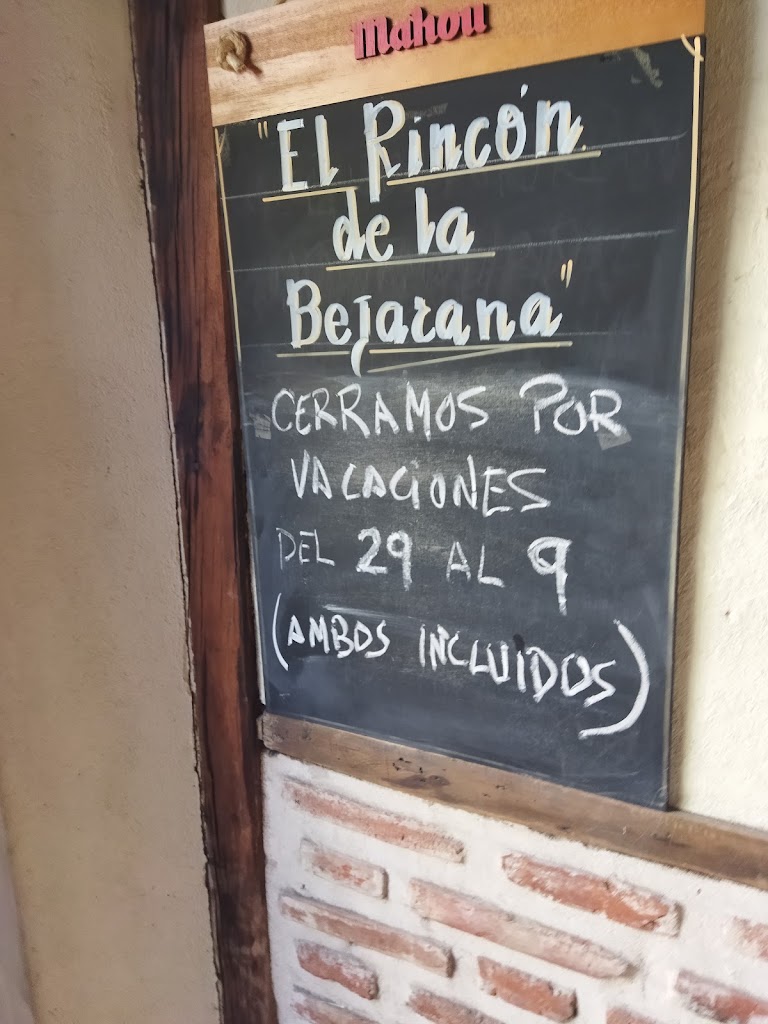 Mahou
"El Rincón
de la
Bejarana"
CERRAMOS POR
VACACIONES
DEL 29 AL 9
(AMBOS INCLUIDOS)